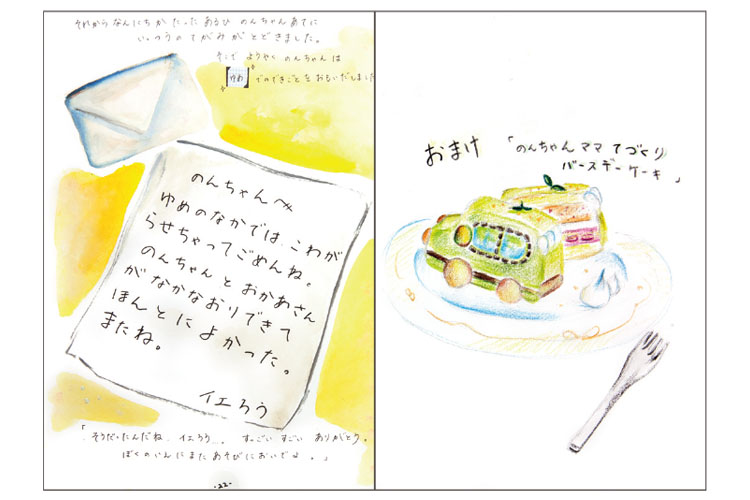 それから なんにちか たった あるひ のんちゃん あてに
いっつうの てがみが とどきました。
そこで ようやく のんちゃんは
ゆめ でのできごとを おもいだしました
のんちゃんへ
ゆめのなかでは こわが
らせちゃってごめんね。
のんちゃん と おかあさん
が なかなおりできて
ほんとに よかった。
またね。
イエろう
「 そうだったんだね イエろう… すっごい すごい ありがとう。
ぼくの に また あそびに おいでよ 。」
・22・
おまけ 「のんちゃん ママ てづくり
バースデー ケーキ 」